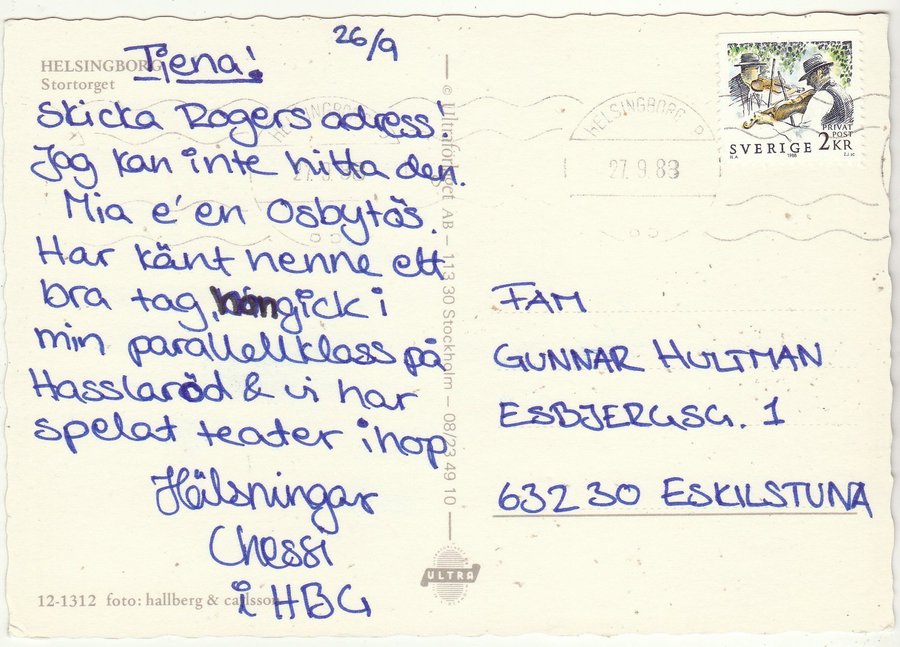 HELSINGBORG
Stortorget
26/9
Tjena!
Skicka Rogers adress!
Jag kan inte hitta den.
Mia e' en Osbytös.
Har känt henne ett
bra tag, hon gick i
min parallellklass på
Hasslaröd & vi har
spelat teater ihop
Hälsningar
Chessi
i HBG
12-1312 foto: hallberg & carlsson
© Ultraförlaget AB – 113 30 Stockholm – 08/23 49 10
ULTRA
HELSINGBORG
27.9.88
HELSINGBORG
27.9.88
PRIVAT
POST
SVERIGE 2KR
1988
FAM
GUNNAR HULTMAN
ESBJERGSG. 1
632 30 ESKILSTUNA